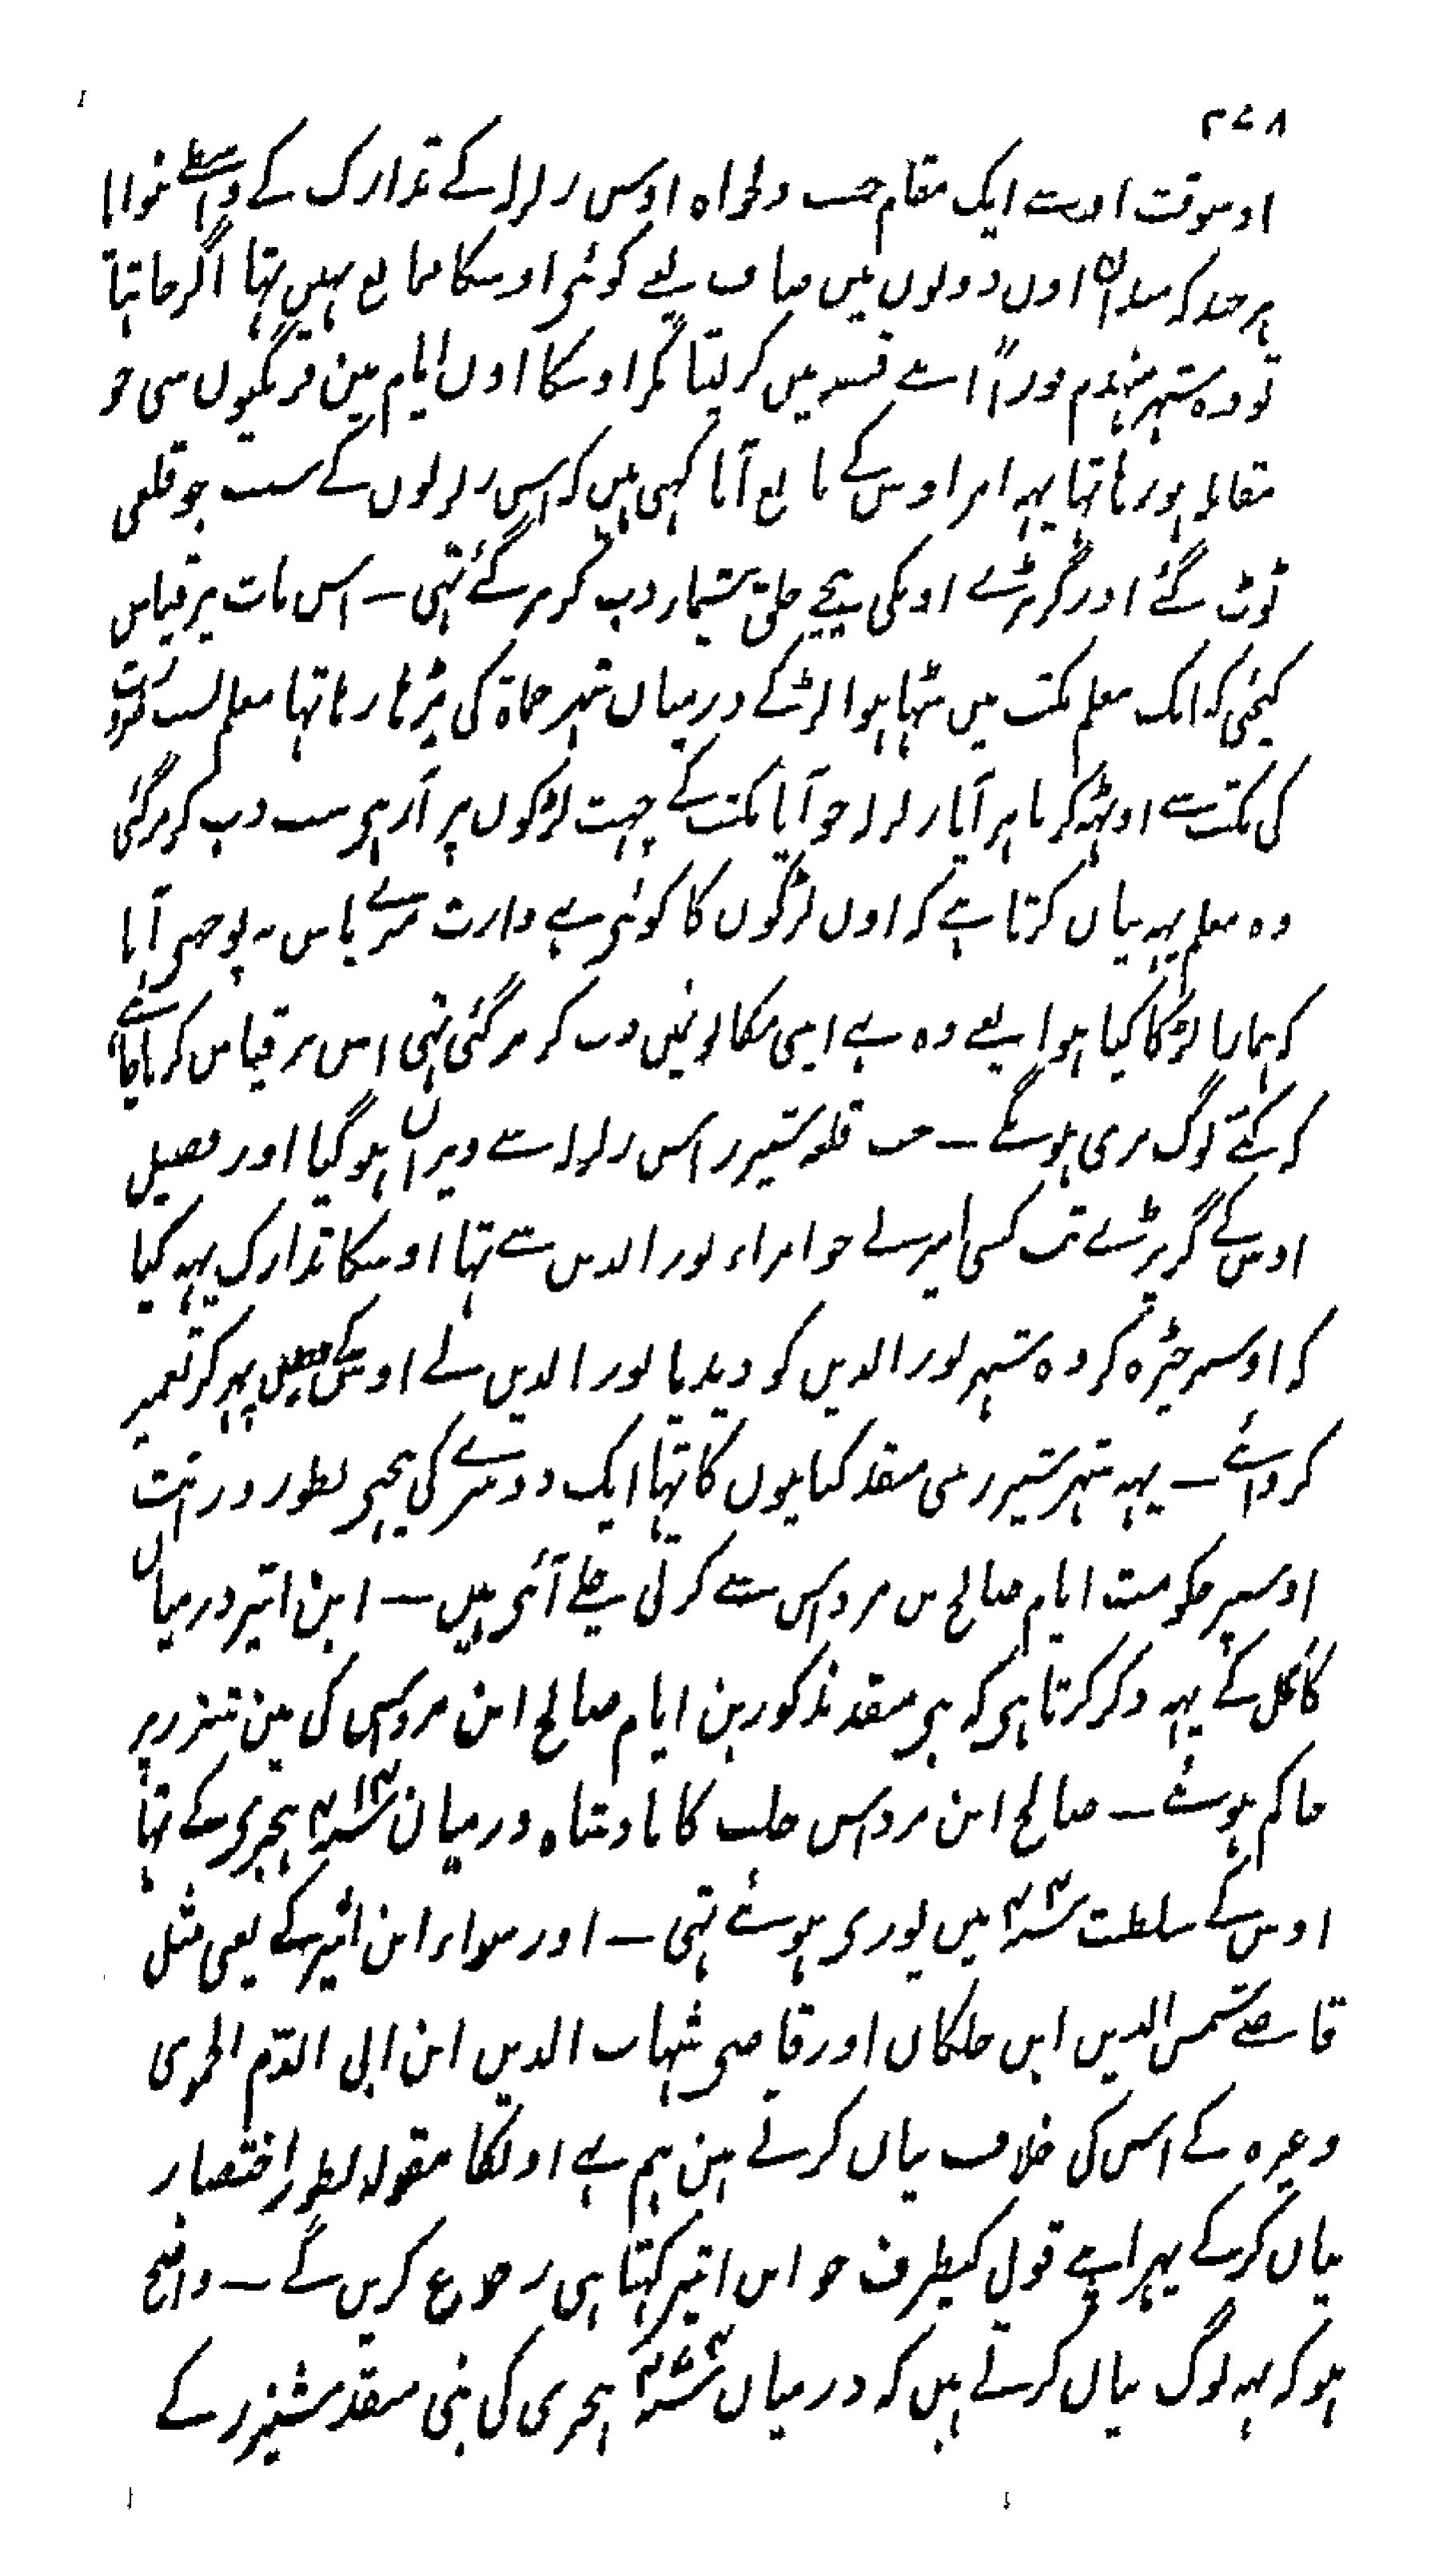 ۲۷۸
اوسوقت اوسے ایک مقام حسب دلخواہ اوس زلزلہ کے تدارک کے واسطے بنوایا
ہرچند کہ میدان اون دونوں میں صاف ہے کوئی اوسکا مانع نہیں تہا اگر چاہتا
تو وہ شہر منہدم فوراً اسے قبضہ میں کر لیتا مگر اوسکا اون ایام مین فرنگیوں سی جو
مقابلہ ہو رہا تہا یہہ امر اوس کے مانع آیا کہی ہیں کہ اس زلزلوں کے سبب جو قلعی
ٹوٹ گئے اور گر پڑے اونکی نیچے خلق بیشمار دب کر مر گئے تہی — اس بات پر قیاس
کیجئی کہ ایک معلم مکتب میں بیٹہا ہوا لڑکے درمیان شہر حماۃ کی پڑہا رہا تہا معلم بسبب ضرورت
کی مکتب سے اوٹہہ کر باہر آیا زلزلہ جو آیا مکتب کے چہت لڑکوں پر آ رہی سب دب کر مر گئی
وہ معلم یہہ بیان کرتا ہے کہ اون لڑکوں کا کوئی بہی وارث میرے پاس نہ پوچہی آیا
کہ ہمارا لڑکا کیا ہوا یعنے وہ بہی اپنی مکانوں میں دب کر مر گئی تہی اس پر قیاس کرنا چاہئے
کہ کتنے لوگ مری ہونگے — جب قلعہ شیزر اس زلزلہ سے ویران ہو گیا اور فصیل
اوس کے گر پڑے تب کسی امیر نے جو امراء نور الدین سے تہا اوسکا تدارک یہہ کیا
کہ اوسپر چڑہ کر وہ شہر نور الدین کو دیدیا نور الدین نے اوس کے فصیل پہر کر تعمیر
کروائے — یہہ شہر شیزر بنی منقذ کنانیوں کا تہا ایک دوسرے کی پیچہی بطور وراثت
اوسپر حکومت ایام صالح بن مرداس سے کرتی چلے آئی ہیں — ابن اثیر درمیان
کامل کے یہہ ذکر کرتا ہی کہ بنی منقذ مذکورین ایام صالح ابن مرداس کی مین شیزر پر
حاکم ہوئے — صالح ابن مرداس حلب کا بادشاہ درمیان سنہ ۴۱۴ ہجری کے تہا
اوس کے سلطنت سنہ ۴۲۰ میں پوری ہوئے تہی — اور سواء ابن اثیر کے یعنی مثل
قاضے شمس الدین ابن خلکان اور قاضی شہاب الدین ابن ابی الدّم الحموی
وغیرہ کے اس کی خلاف بیان کرتے ہین ہم بہی اونکا مقولہ بطور اختصار
بیان کر کے پہر اپنے قول کیطرف جو ابن اثیر کہتا ہی رجوع کریں گے — واضح
ہو کہ یہہ لوگ بیان کرتے ہیں کہ درمیان سنہ ۴۷۴ ہجری کی بنی منقذ شیزر کے